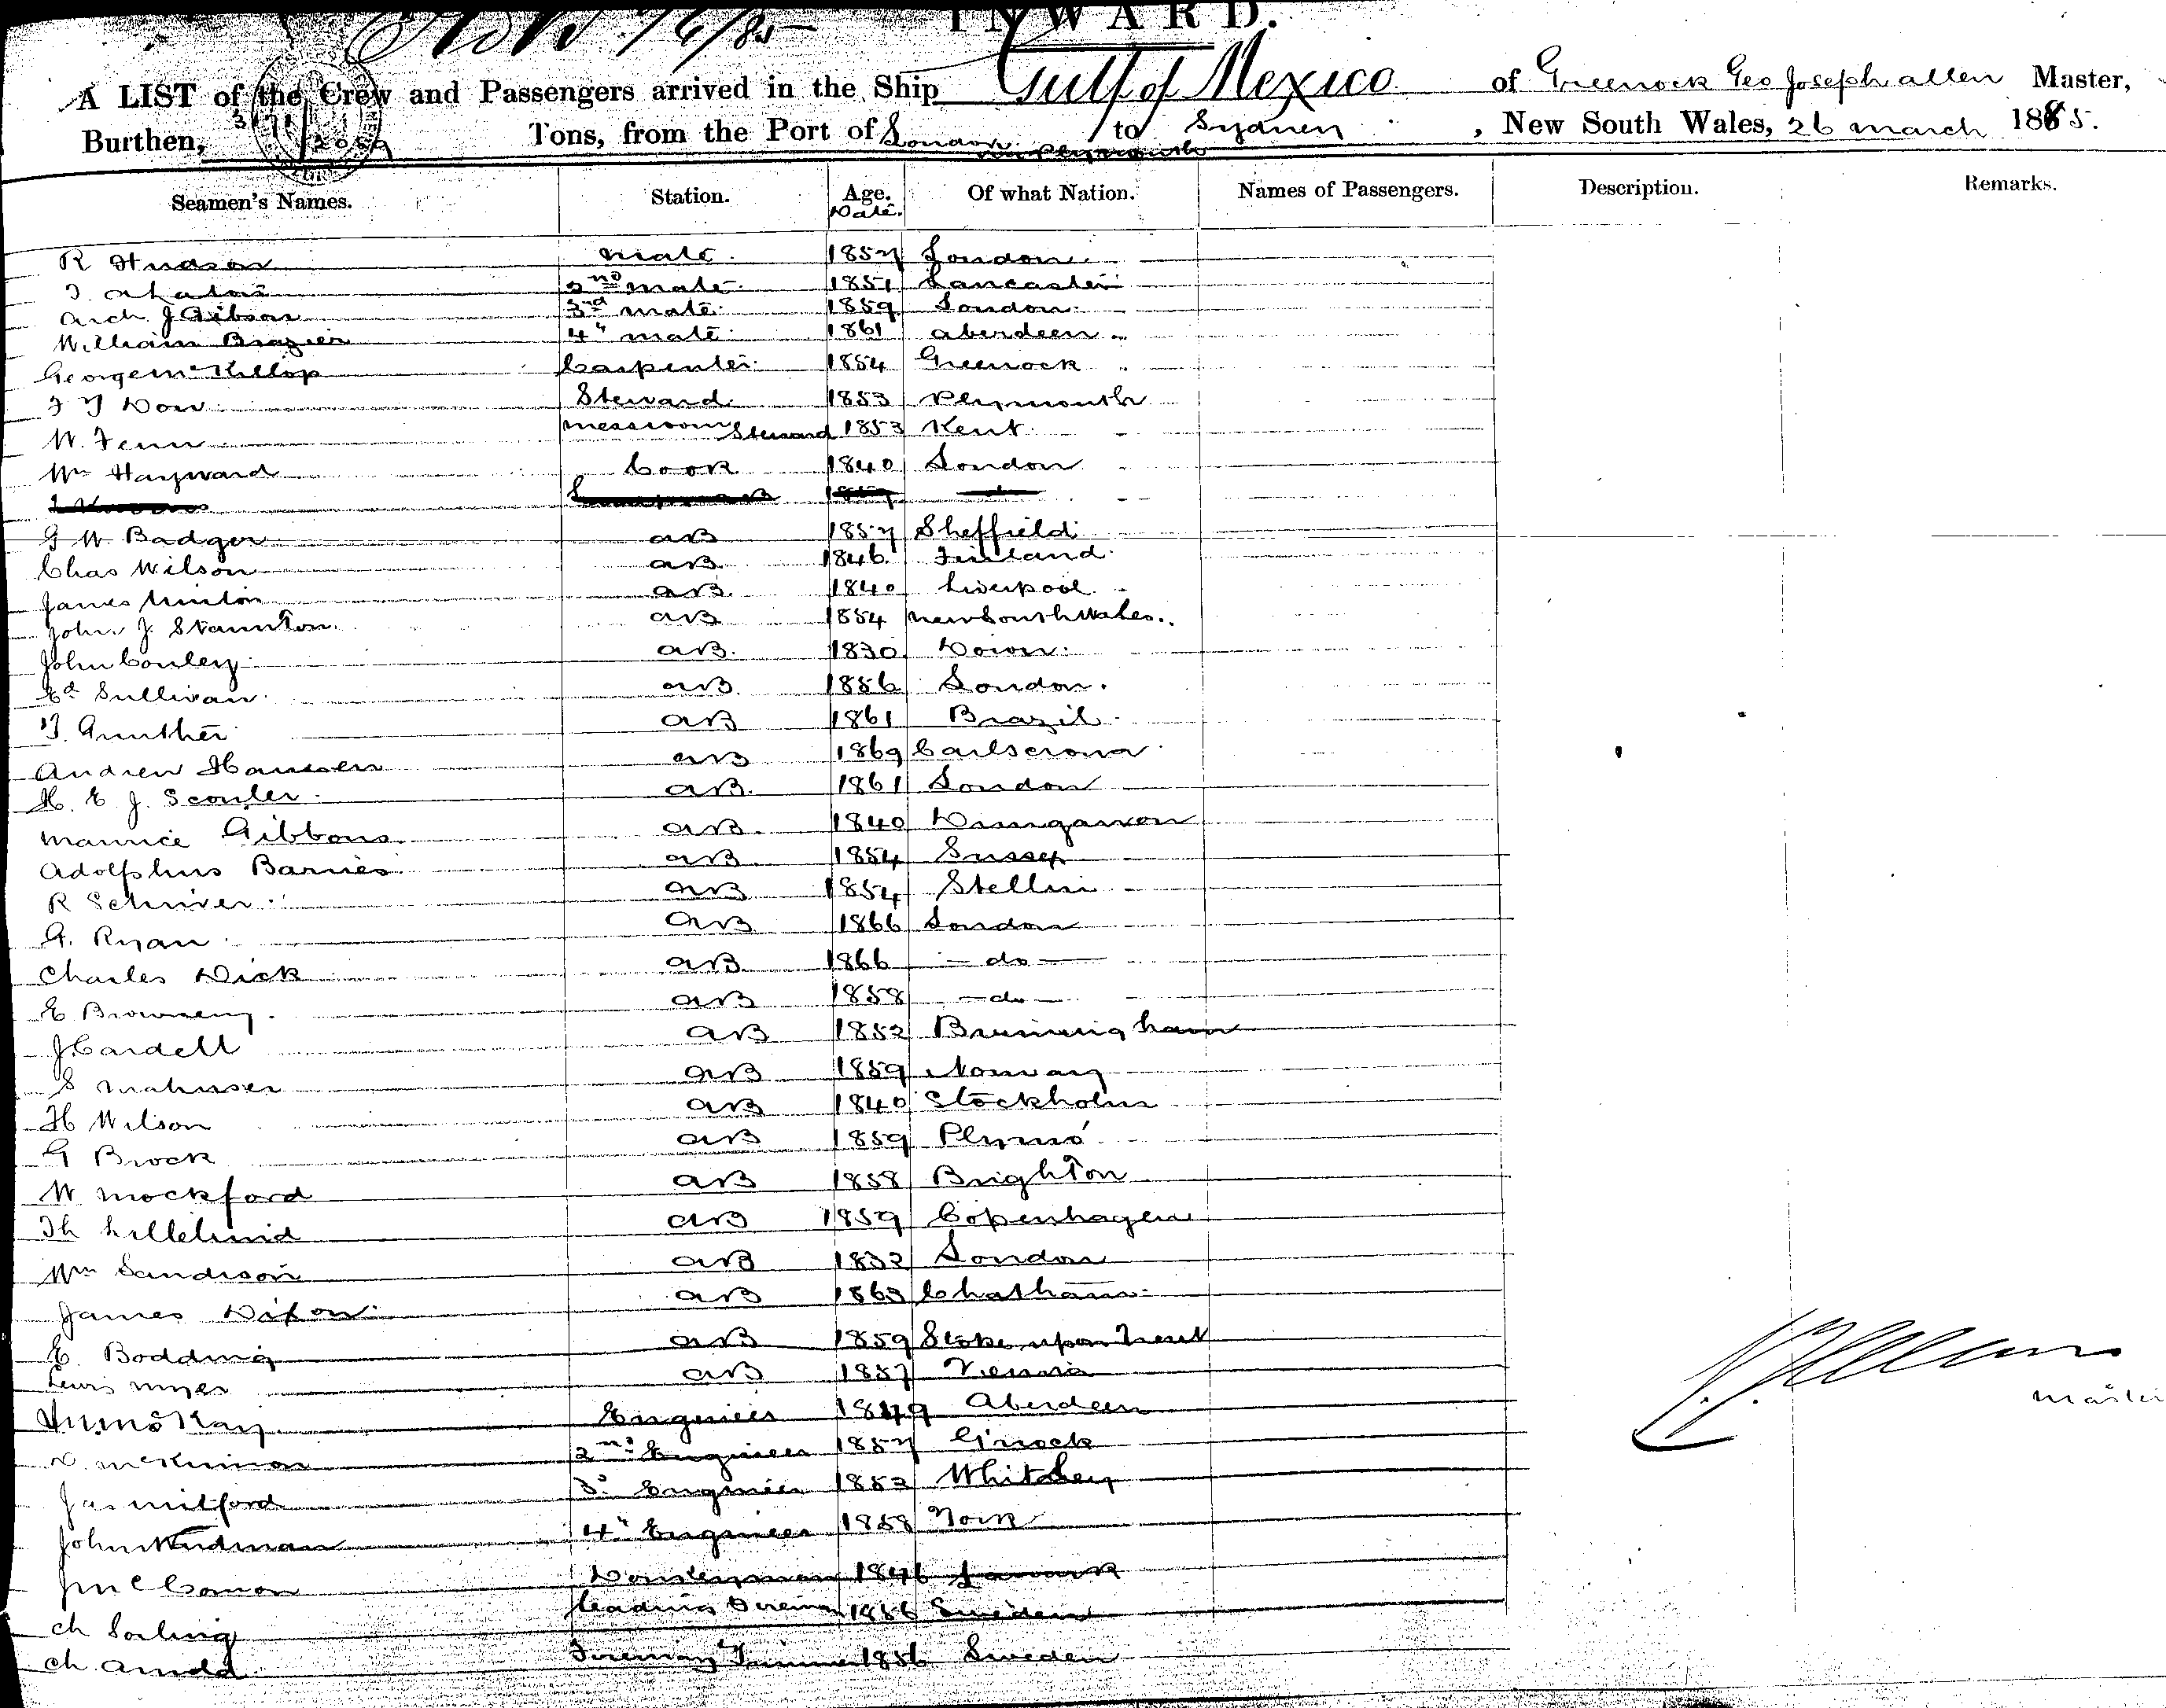 INWARD.
A LIST of the Crew and Passengers arrived in the Ship Gulf of Mexico of Greenock Geo Joseph Allen Master,
Burthen, Tons, from the Port of London to Sydney, New South Wales, 26 March 1885.
via Plymouth
Seamen's Names. Station. Age. Of what Nation. Names of Passengers. Description. Remarks.
Date.
R Hudson mate 1857 London
2nd mate 1851 Lancaster
Arch J Gibson 3rd mate 1859 London
William Brazier 4" mate 1861 Aberdeen
George McKillop Carpenter 1854 Greenock
Dow Steward 1853 Plymouth
W. Fenn Messroom Steward 1853 Kent
Wm Hayward Cook 1840 London
G W Badger AB 1857 Sheffield
Chas Wilson AB 1846 Finland
James AB 1840 Liverpool
John J. Staunton AB 1854 New South Wales
John Conley AB 1830 Down
Ed Sullivan AB 1856 London
Gunther AB 1861 Brazil
Andrew Hansen AB 1869 Carlscrona
H. E. J. Scouler AB 1861 London
Maurice Gibbons AB 1840 Dungarvon
Adolphus Barnes AB 1854 Sussex
R Schriver AB 1854 Stettin
G. Ryan AB 1866 London
Charles Dick AB 1866 - do -
E Browney AB 1858 - do -
J Cardell AB 1852 Birmingham
S AB 1859 Norway
H Wilson AB 1840 Stockholm
G Brock AB 1859 Plymo
W Mockford AB 1858 Brighton
Th Lillelund AB 1859 Copenhagen
Wm Sandison AB 1832 London
James Dixon AB 1863 Chatham
E. Bodding AB 1859 Stoke upon Trent
Lewis Myer AB 1857 Vienna
McKay Engineer 1849 Aberdeen
D. McKinnon 2nd Engineer 1857 Grnock
Jas Mitford 3d Engineer 1852 Whitby
John Wudman 4" Engineer 1858 York
J McCarron Donkeyman 1846 Lanark
Ch Leading Fireman 1856 Sweden
Ch Fireman Trimmer 1856 Sweden
Allen
Master